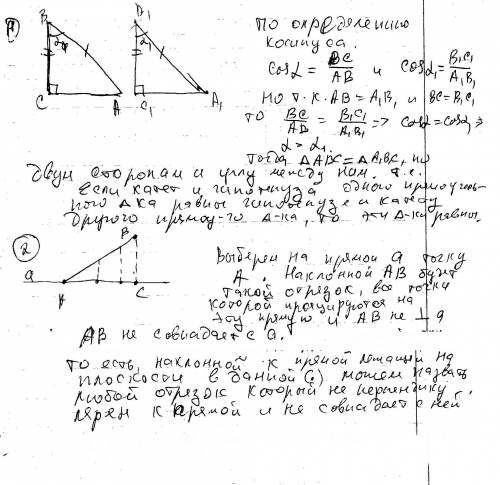 1
B α A C
B1 α1 C1 A1
По определению
косинуса.
cos α = BC/AB и cos α1 = B1C1/A1B1
но т.к. AB = A1B1 и BC = B1C1
то BC/AB = B1C1/A1B1 => cos α = cos α1 =>
α = α1
Тогда ΔABC = ΔA1B1C1 по
двум сторонам и углу между ним. т.е.
если катет и гипотенуза одного прямоуголь-
ного Δка равны гипотенузе и катету
другого прямоу-го Δ-ка, то эти Δ-ки равны.
2
a A B C
Выберем на прямой a точку
A. Наклонной AB будет
такой отрезок, все точки
которой проецируются на
эту прямую и AB не ⊥ a
AB не совпадает с a.
То есть, наклонной к прямой лежащий на
плоскости в данной мотем назвать
любой отрезок который не перпендику
лярен к прямой и не совпадает с ней